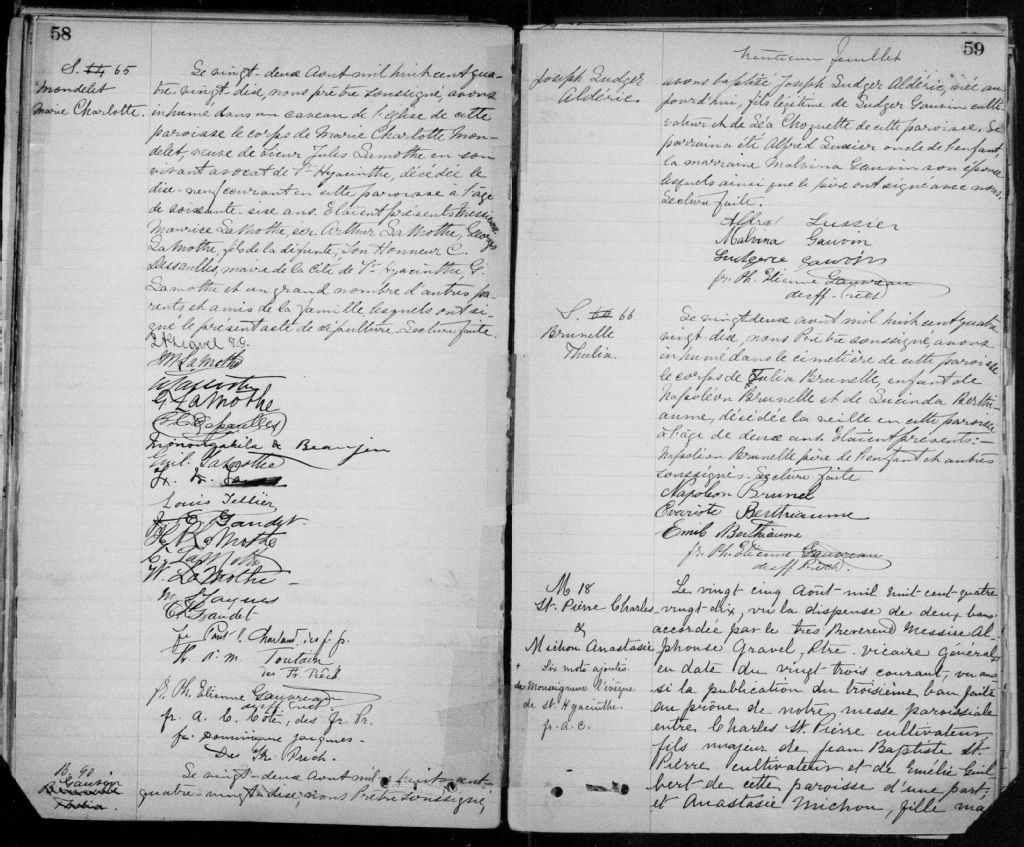 58
S. 44 65
Mondelet
Marie Charlotte.
Le vingt-deux Août mil huit cent qua-
tre-vingt-dix, nous prêtre soussigné, avons
inhumé dans un caveau de l'église de cette
paroisse le corps de Marie Charlotte Mon-
delet, veuve de Sieur Jules Lamothe en son
vivant avocat de St Hyacinthe, décédée le
dix-neuf courant en cette paroisse à l'âge
de soixante six ans. Etaient présents Messieurs
Maurice LaMothe, ecr Arthur LaMothe, Georges
LaMothe, fils de la défunte, Son Honneur C.
Dessaulles, maire de la Cité de St Hyacinthe G.
Lamothe et un grand nombre d'autres pa-
rents et amis de la famille lesquels ont si-
gné le présent acte de sépulture. Lecture faite.
LaMothe
G LaMothe
Monongahila de Beaujeu
LaMothe
Louis Tellier
Gaudet.
LaMothe
LaMothe
W. LaMothe
M. S Jaques
Gaudet
fr Paul C. Charland des f. pr.
fr a. m. Toutain
des fr. Prêch
fr. Ph. Etienne Gauvreau
des ff. Prêch
fr. A. C. Côté, des fr. Pr.
fr. Dominique Jacques
Des fr. Prêch.
B. 90
Gauvin
Brunelle
Thulia
Le vingt-deux Août mil huit cent
quatre-vingt-dix, nous Prêtre soussigné,
59
Juillet
Joseph Ludger
Aldéric.
avons baptisé Joseph Ludger Aldéric, né au-
jourd'hui, fils légitime de Ludger Gauvin culti-
vateur et de Léa Choquette de cette paroisse. Le
parrain a été Alfred Lussier oncle de l'enfant,
la marraine Malvina Gauvin son épouse
lesquels ainsi que le père ont signé avec nous.
Lecture faite.
Alfred Lussier
Malvina Gauvin
Ludgere Gauvin
fr. Ph. Etienne Gauvreau
des ff. Prêch
S. 44 66
Brunelle
Thulia.
Le vingt-deux Août mil huit cent quatre-
vingt-dix, nous Prêtre soussigné, avons
inhumé dans le cimetière de cette paroisse
le corps de Tulia Brunelle, enfant de
Napoléon Brunelle et de Lucinda Berthi-
aume, décédée la veille en cette paroisse
à l'âge de deux ans. Etaient présents:-
Napoléon Brunelle père de l'enfant et autres
soussignés. Lecture faite
Napoleon Brunel
Evariste Berthiaume
Emil Berthieume
fr. Ph. Etienne Gauvreau
des ff Prêch.
M 18
St. Pierre Charles
&
Michon Anastasie
+
Six mots ajoutés.
de Monseigneur l'évêque
de St. Hyacinthe.
fr. A. C.
Le vingt cinq Août mil huit cent quatre
vingt-dix, vu la dispense de deux bans
accordée par le très Révérend Messire Al-
phonse Gravel, Ptre. vicaire général+
en date du vingt trois courant, vu aus-
si la publication du troisième ban faite
au prône de notre messe paroissiale
entre Charles St. Pierre cultivateur
fils majeur de Jean Baptiste St.
Pierre cultivateur et de Emélie Guil-
bert de cette paroisse d'une part,
et Anastasie Michon, fille ma